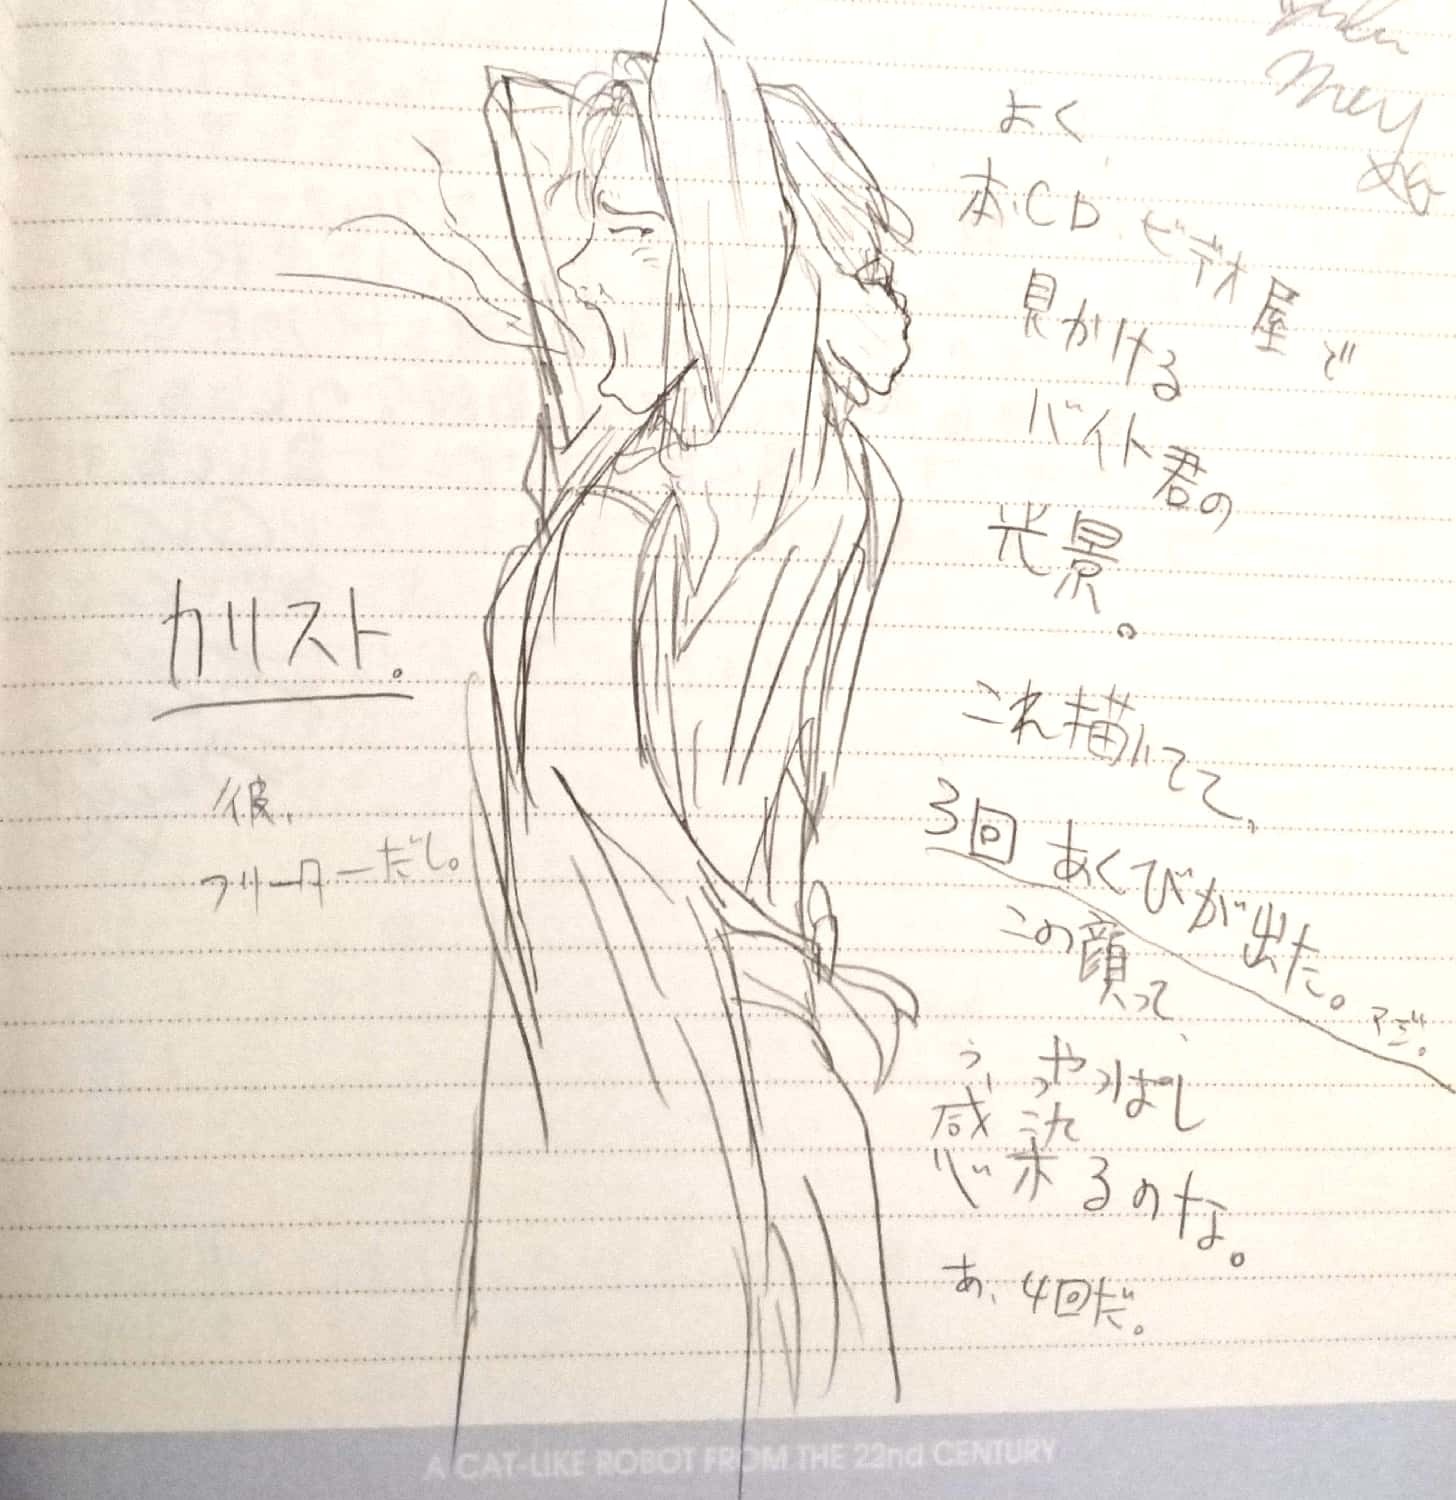 よく、
本、CD、ビデオ屋で
見かける
バイト君の
光景。
カリスト。
彼、
フリーターだし。
これ描いてて、
3回あくびが出た。マジ。
この顔って、
やっぱし
感染るのな。
あ、4回だ。
A CAT-LIKE ROBOT FROM THE 22nd CENTURY